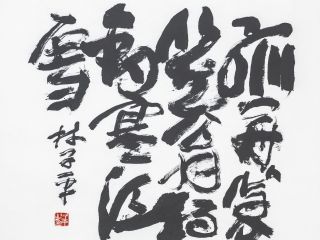 孤舟蓑
笠翁
釣寒江
雪
林子平